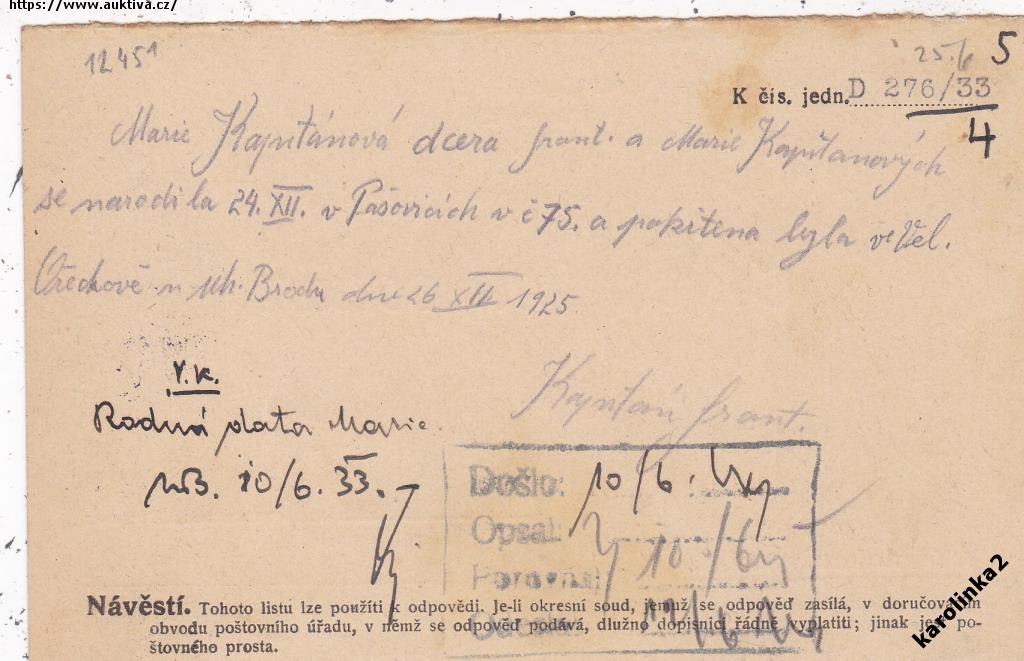 https://www.auktiva.cz/
12451
25./6 5
K čís. jedn. D 276/33
4
Marie Kapitánová dcera frant. a Marie Kapitanových
se narodila 24. XII. v Pašovicích v č 75. a pokřtena byla ve Vel.
Ořechově u Uh. Brodu dne 26 XII 1925.
Kapitán frant.
V.k.
Rodná data Marie
10/6. 33.
Došlo: 10/6.
Opsal: 10/6
Porovnal:
Návěstí. Tohoto listu lze použíti k odpovědi. Je-li okresní soud, jemuž se odpověď zasílá, v doručovacím
obvodu poštovního úřadu, v němž se odpověď podává, dlužno dopisnici řádně vyplatiti; jinak jest po-
štovného prosta.
karolinka2